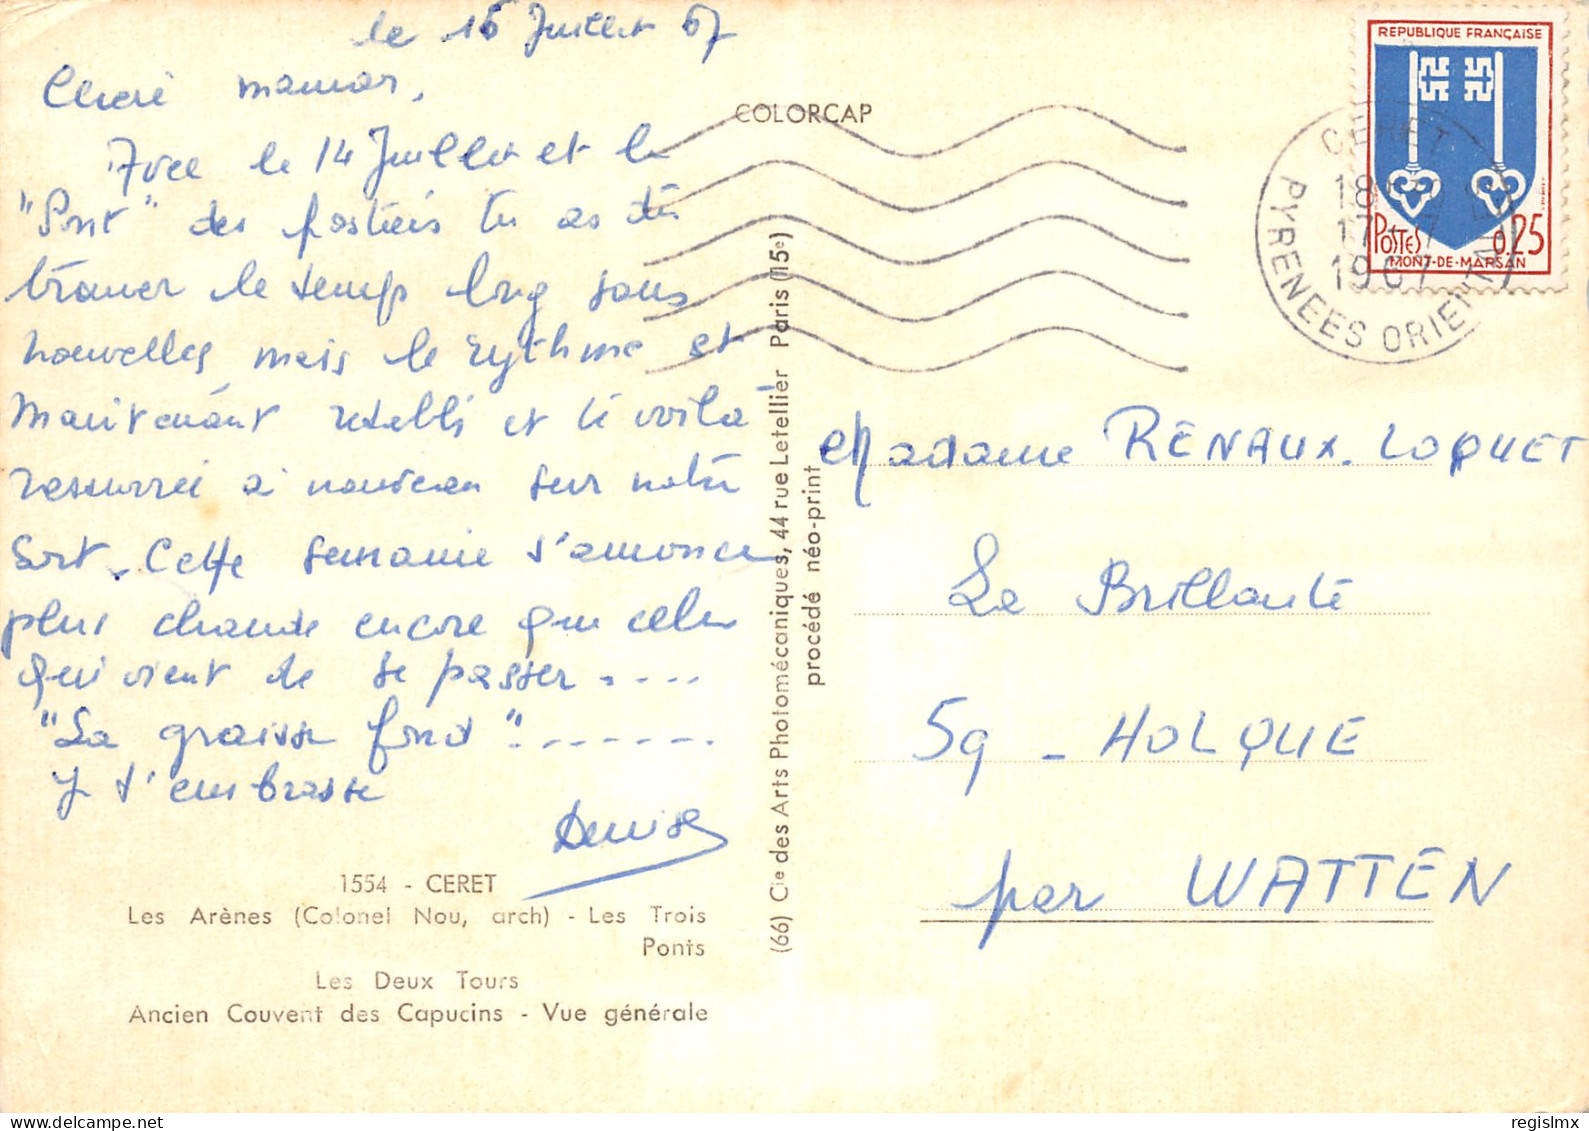 le 16 Juillet 67
Chère maman,
Avec le 14 Juillet et le
"Pont" des postiers tu as dû
trouver le temps long sans
nouvelles mais le rythme est
maintenant rétabli et te voilà
rassurée à nouveau sur notre
sort. Cette semaine s'annonce
plus chaude encore que celle
qui vient de se passer.....
"La graisse fond".......
Je t'embrasse
Denise
1554 - CERET
Les Arènes (Colonel Nou, arch) - Les Trois
Ponts
Les Deux Tours
Ancien Couvent des Capucins - Vue générale
COLORCAP
(66) Cie des Arts Photomécaniques, 44 rue Letellier Paris (15e)
procédé néo-print
REPUBLIQUE FRANÇAISE
POSTES 0,25
MONT-DE-MARSAN
CERET
18
17-7
1967
PYRENEES ORIENTALES
Madame RENAUX-LOQUET
La Brillante
59 - HOLQUE
par WATTEN
regislmx